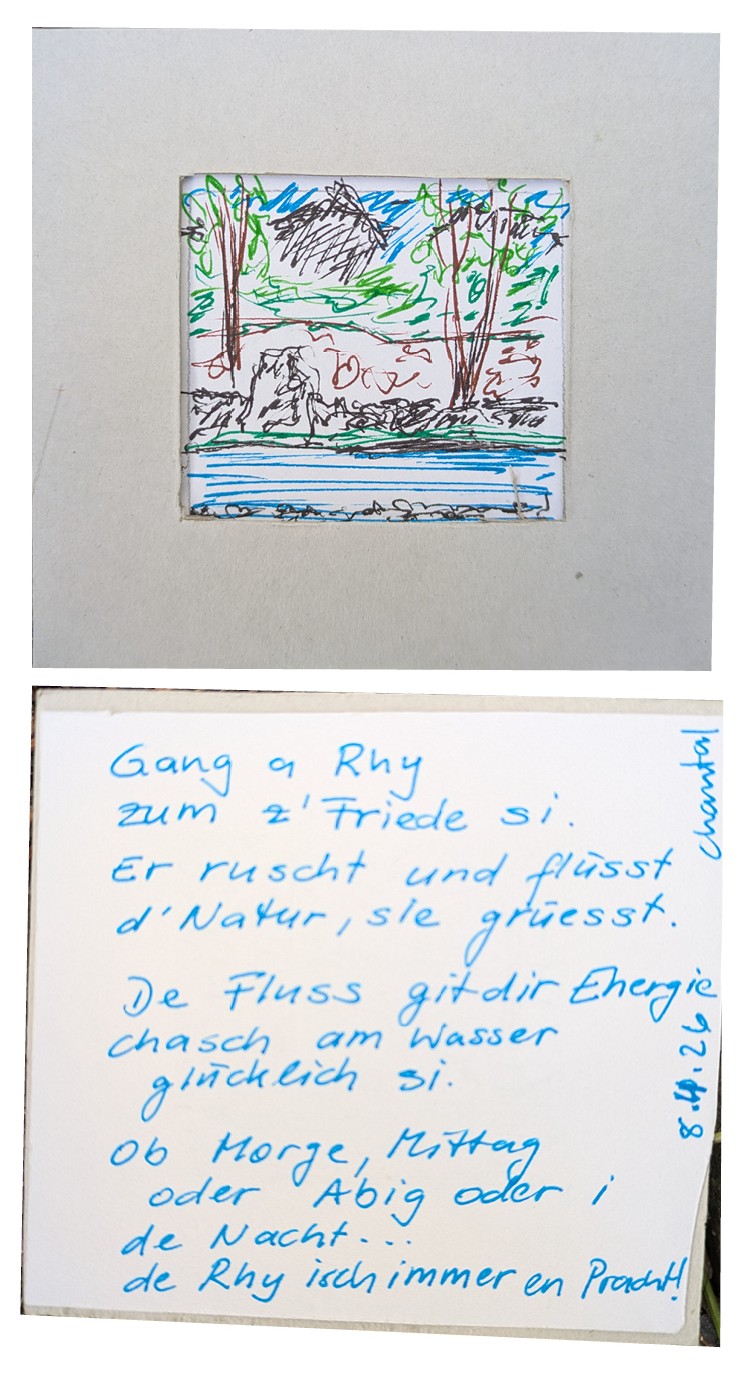 Gang a Rhy
zum z'Friede si.
Er ruscht und flüsst
d'Natur, sie grüesst.
De Fluss git dir Energie
chasch am Wasser
glücklich si.
Ob Morge, Mittag
oder Abig oder i
de Nacht...
de Rhy isch immer en Pracht!
chantal
8.4.26